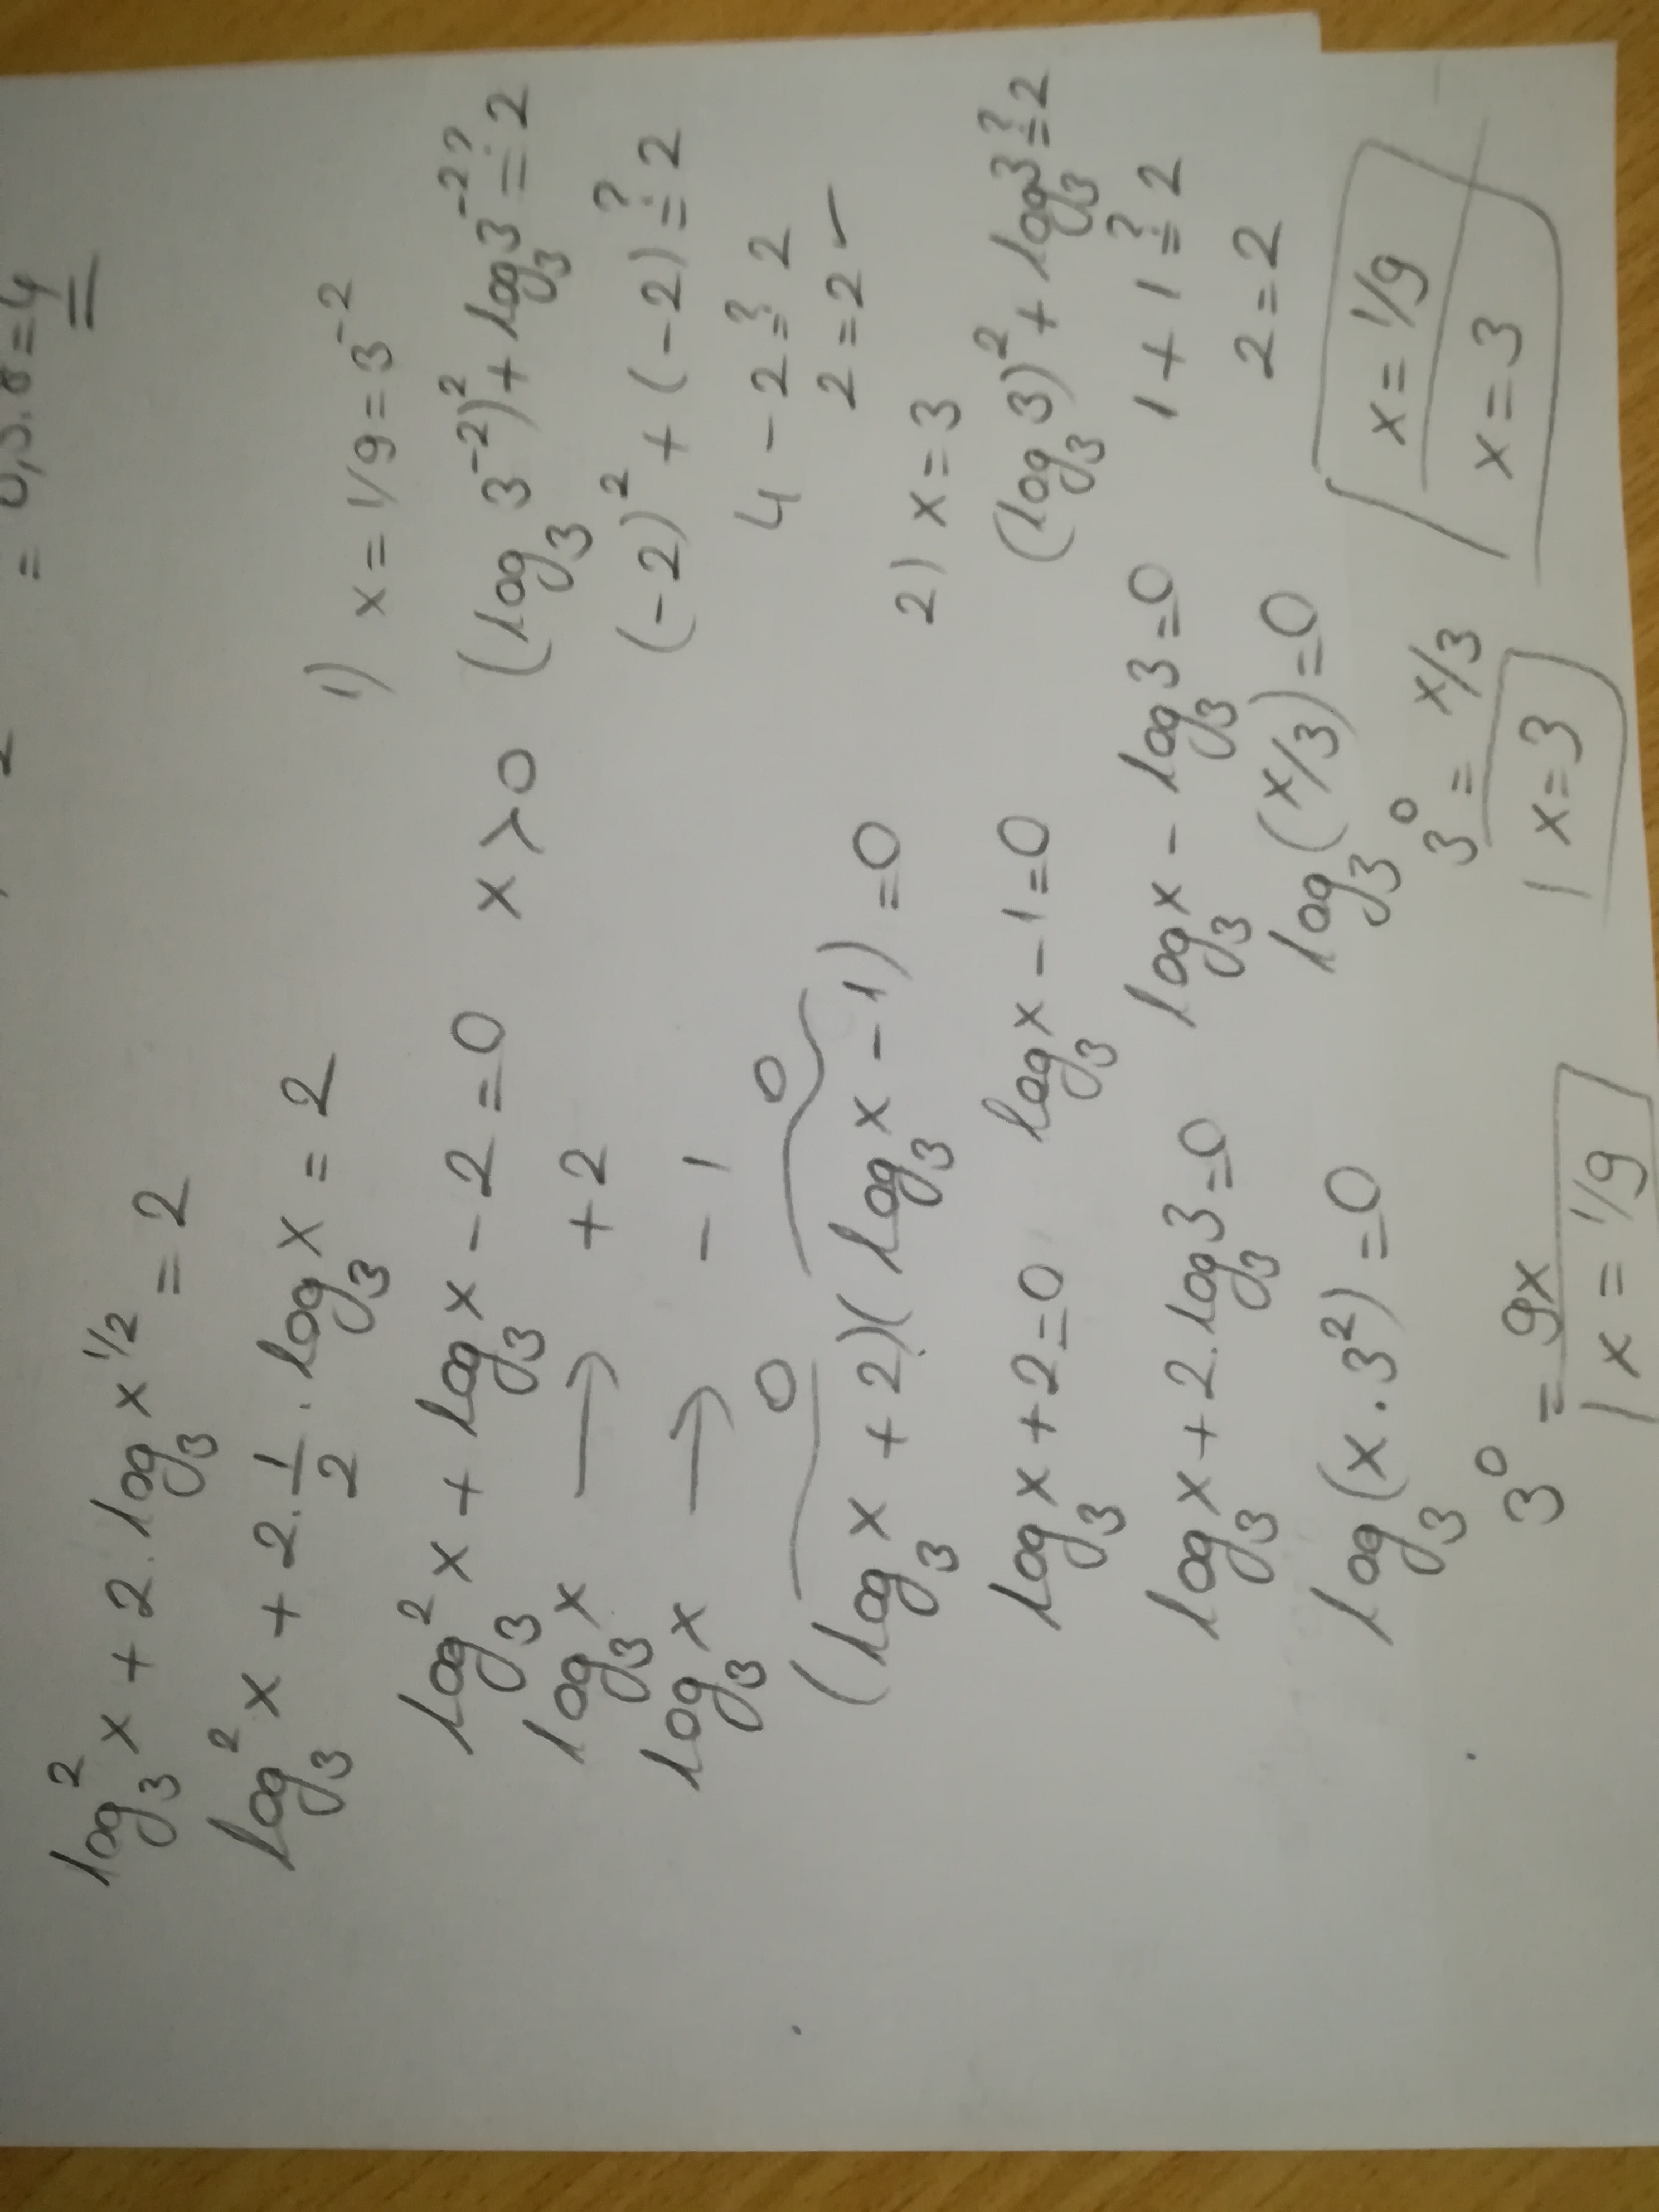 = 0,5.8=4
log₃²x + 2.log₃x^1/2 = 2
log₃²x + 2.1/2.log₃x = 2
log₃²x + log₃x - 2 = 0 x>0
log₃x → +2
log₃x → -1
0 0
(log₃x + 2)(log₃x - 1) = 0
log₃x + 2 = 0 log₃x - 1 = 0
log₃x + 2.log₃3 = 0 log₃x - log₃3 = 0
log₃(x.3²) = 0 log₃(x/3) = 0
3⁰ = 9x 3⁰ = x/3
x = 1/9 x = 3
1) x = 1/9 = 3⁻²
(log₃3⁻²)² + log₃3⁻² ≟ 2
(-2)² + (-2) ≟ 2
4 - 2 ≟ 2
2 = 2 ✓
2) x = 3
(log₃3)² + log₃3 ≟ 2
1 + 1 ≟ 2
2 = 2
x = 1/9
x = 3